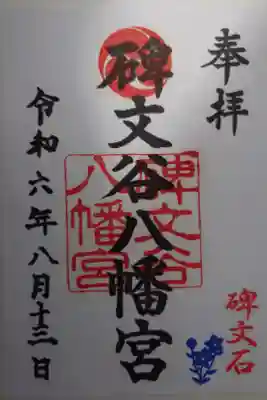 奉拝
碑文谷八幡宮
碑文谷
八幡宮
碑文石
令和六年八月十三日